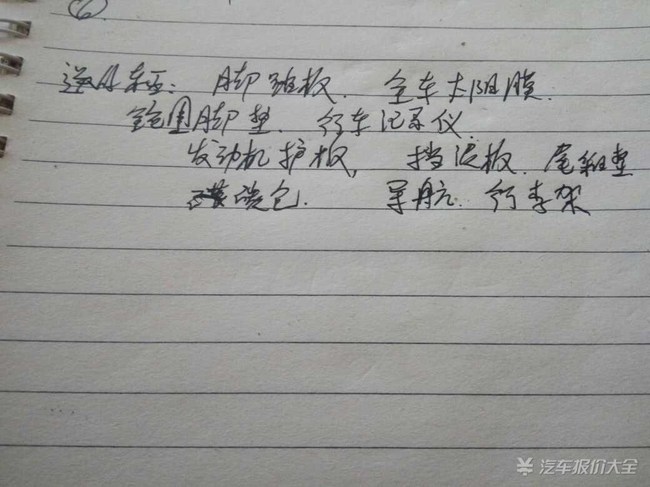 ⑥
送: 脚踏板、全车太阳膜
全包围脚垫、行车记录仪
发动机护板、挡泥板、尾箱垫
碳包、导航、行李架
¥ 汽车报价大全